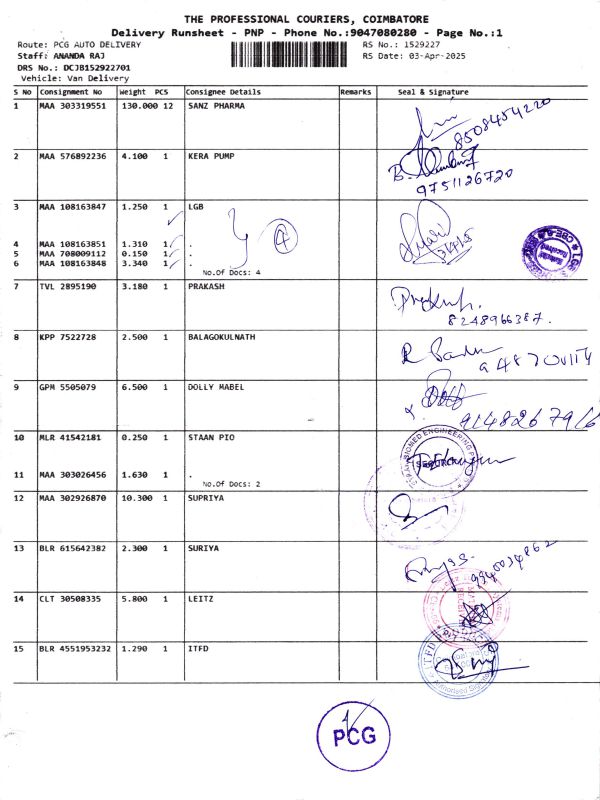 THE PROFESSIONAL COURIERS, COIMBATORE
Delivery Runsheet - PNP - Phone No.:9047080280 - Page No.:1
Route: PCG AUTO DELIVERY RS No.: 1529227
Staff: ANANDA RAJ RS Date: 03-Apr-2025
DRS No.: DCJB152922701
Vehicle: Van Delivery
S No Consignment No Weight PCS Consignee Details Remarks Seal & signature
1 MAA 303319551 130.000 12 SANZ PHARMA
8508454220
2 MAA 576892236 4.100 1 KERA PUMP
9751126720
3 MAA 108163847 1.250 1 LGB
4
4 MAA 108163851 1.310 1 .
5 MAA 708009112 0.150 1 .
6 MAA 108163848 3.340 1 .
No.Of Docs: 4
7 TVL 2895190 3.180 1 PRAKASH
8248966387.
8 KPP 7522728 2.500 1 BALAGOKULNATH
9 GPM 5505079 6.500 1 DOLLY MABEL
10 MLR 41542181 0.250 1 STAAN PIO
11 MAA 303026456 1.630 1 .
No.Of Docs: 2
12 MAA 302926870 10.300 1 SUPRIYA
13 BLR 615642382 2.300 1 SURIYA
14 CLT 30508335 5.800 1 LEITZ
15 BLR 4551953232 1.290 1 ITFD
ITFD
PCG